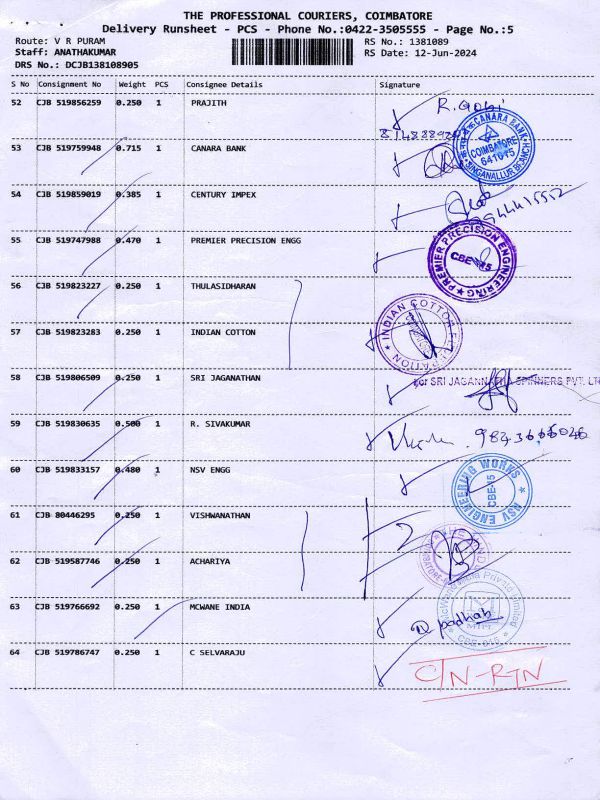 THE PROFESSIONAL COURIERS, COIMBATORE
Delivery Runsheet - PCS - Phone No.:0422-3505555 - Page No.:5
Route: V R PURAM RS No.: 1381089
Staff: ANATHAKUMAR RS Date: 12-Jun-2024
DRS No.: DCJB138108905
S No Consignment No Weight PCS Consignee Details Signature
52 CJB 519856259 0.250 1 PRAJITH R. Gobi
53 CJB 519759948 0.715 1 CANARA BANK
CANARA BANK COIMBATORE 641015 SINGANALLUR BRANCH
54 CJB 519859019 0.385 1 CENTURY IMPEX
55 CJB 519747988 0.470 1 PREMIER PRECISION ENGG
PREMIER PRECISION ENGINEERING CBE-15
56 CJB 519823227 0.250 1 THULASIDHARAN
57 CJB 519823283 0.250 1 INDIAN COTTON
INDIAN COTTON
58 CJB 519806509 0.250 1 SRI JAGANATHAN
For SRI JAGANNATHA SPINNERS PVT. LT
59 CJB 519830635 0.500 1 R. SIVAKUMAR
60 CJB 519833157 0.480 1 NSV ENGG
NSV ENGINEERING WORKS CBE-15
61 CJB 80446295 0.250 1 VISHWANATHAN
62 CJB 519587746 0.250 1 ACHARIYA
63 CJB 519766692 0.250 1 MCWANE INDIA
McWane India Private Limited
64 CJB 519786747 0.250 1 C SELVARAJU